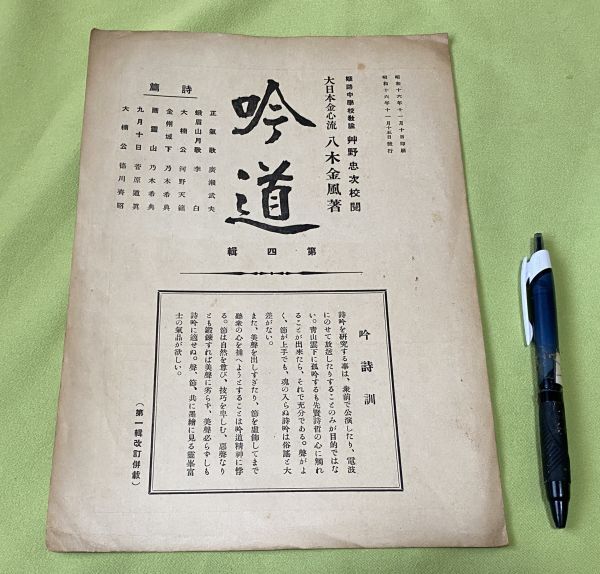 昭和十六年十一月十日印刷
昭和十六年十一月十五日發行
中學校教諭 艸野忠次校閲
大日本金心流 八木金風著
吟道
第四輯
詩篇
正氣歌 廣瀬武夫
峨眉山月歌 李白
大楠公 河野天籟
金州城下 乃木希典
爾靈山 乃木希典
九月十日 菅原道眞
大楠公 德川齊昭
吟詩訓
詩吟を研究する事は、衆前で公演したり、電波
にのせて放送したりすることのみが目的ではな
い。青山雲下に孤吟するも先賢詩哲の心に觸れ
ることが出來たら、それで充分である。聲がよ
く、節が上手でも、魂の入らぬ詩吟は俗謠と大
差がない。
また、美聲を出しすぎたり、節を虚飾してまで
聽衆の心を捕へようとすることは吟道精神に悖
る。節は自然を尊び、技巧を卑しむ、惡聲なり
とも鍛錬すれば美聲に劣らず、美聲必らずしも
詩吟に適せぬ。聲、節、共に墨繪に見る靈峯富
士の氣品が欲しい。
（第一輯改訂併載）